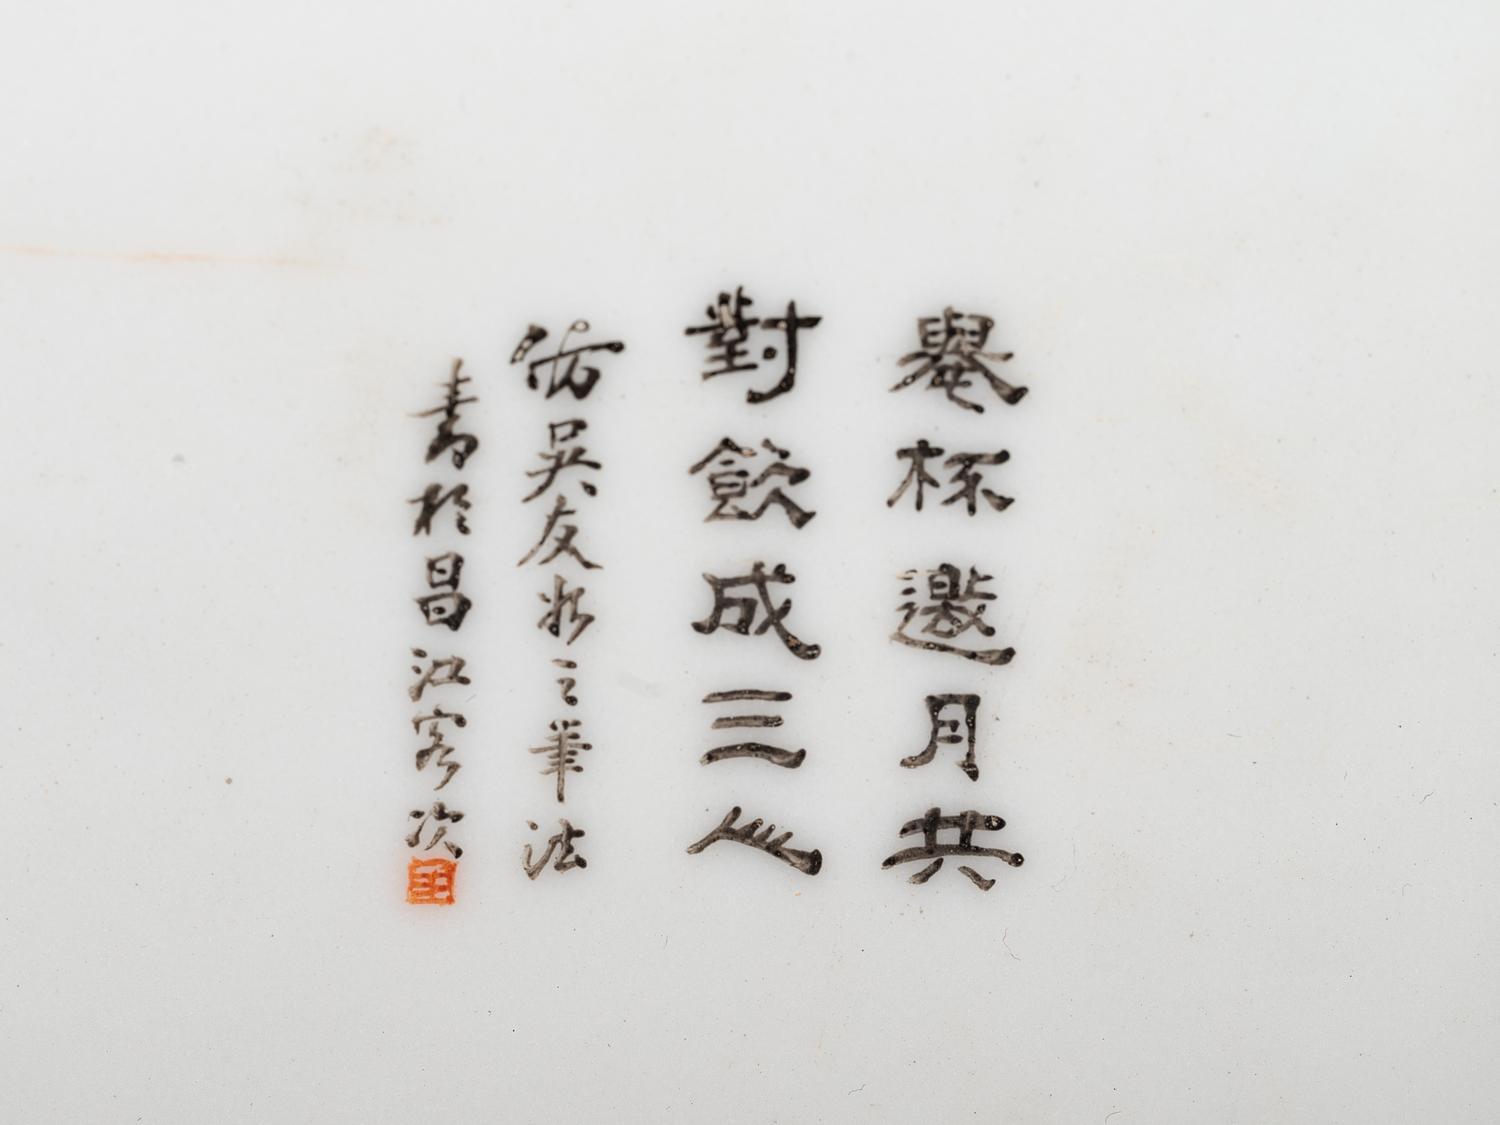 舉杯邀月共
對飲成三人
仿吳友之筆法
書於昌江客次